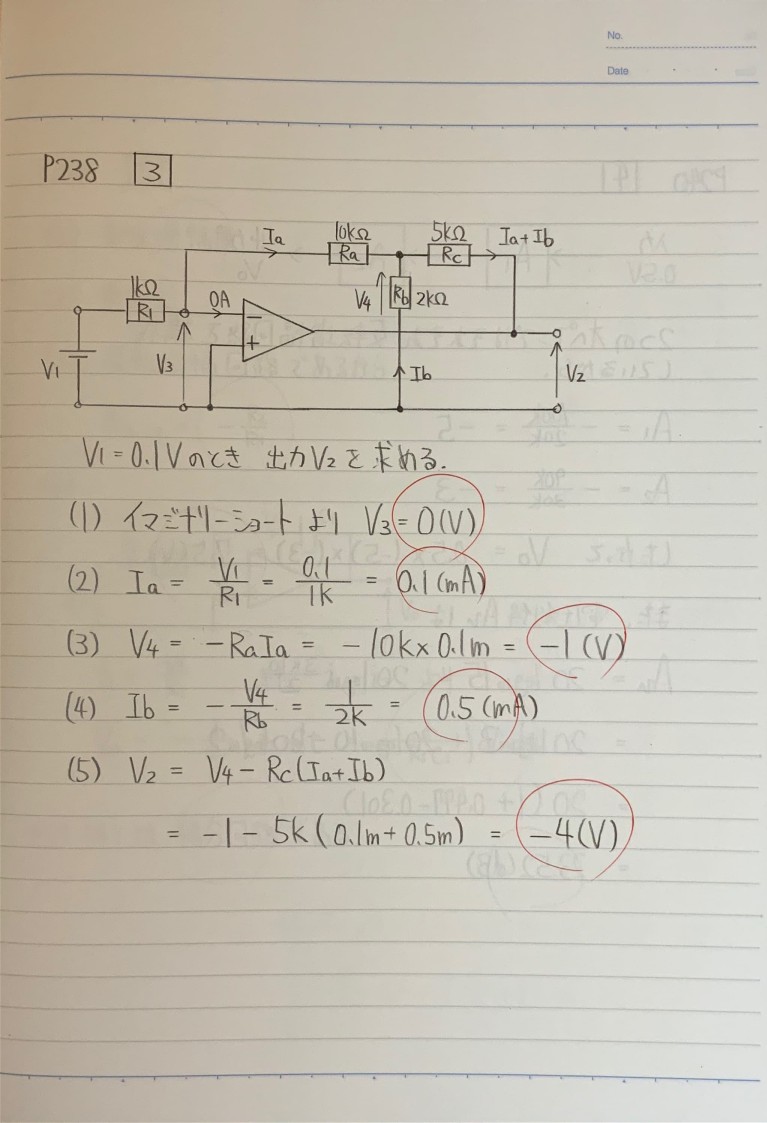 No.
Date
P238 3
Ia 10kΩ 5kΩ Ia+Ib
Ra Rc
1kΩ 0A V4 Rb 2kΩ
R1 −
+
V1 V3 Ib V2
V1=0.1Vのとき 出力V2を求める.
(1) イマジナリーショートより V3=0(V)
(2) Ia = V1/R1 = 0.1/1k = 0.1(mA)
(3) V4 = -RaIa = -10k×0.1m = -1(V)
(4) Ib = -V4/Rb = 1/2k = 0.5(mA)
(5) V2 = V4-Rc(Ia+Ib)
= -1-5k(0.1m+0.5m) = -4(V)